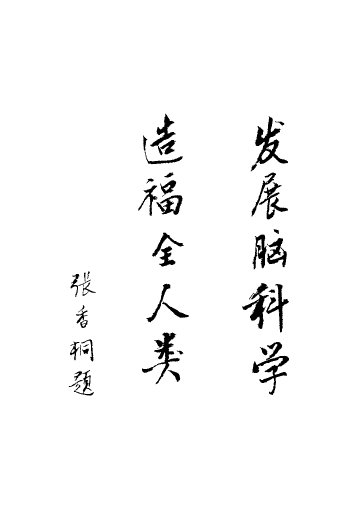 发展脑科学
造福全人类
張香桐题